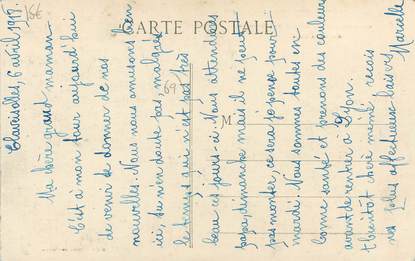 15€
CARTE POSTALE
69
M
Claveisolles, 6 avril 1917
Ma chère grand maman
C'est à mon tour aujourd'hui
de venir te donner de nos
nouvelles. Nous nous amusons bien
ici, tu n'en doute pas, malgré
le temps qui n'est pas très
beau ces jours-ci. Nous attendons
papa dimanche mais il ne peut
pas monter, ce sera je pense pour
mardi. Nous sommes toutes en
bonne santé et prenons des couleurs
avant de rentrer à Lyon.
A bientôt donc mémé, reçois
mes plus affectueux baisers
Marcelle